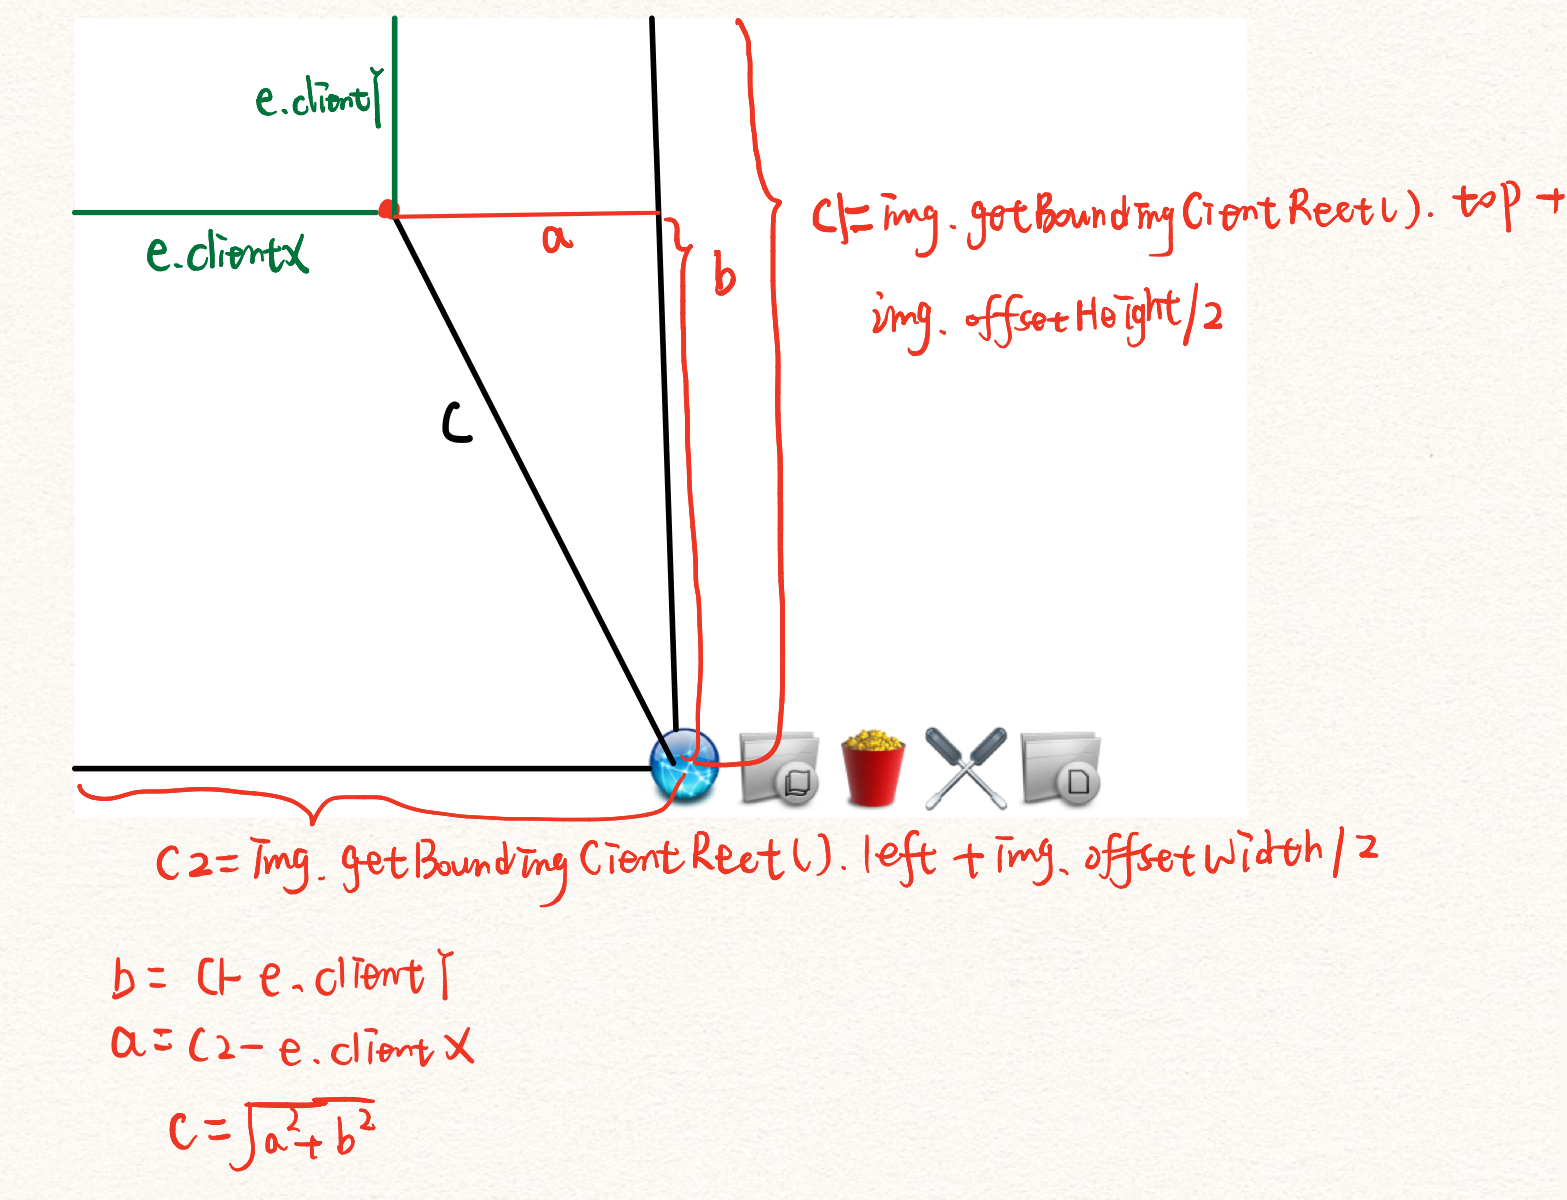 e.clientY
e.clientX
a
b
c
c1=img.getBoundingCientRect().top+
img.offsetHeight/2
c2=img.getBoundingCientRect().left+img.offsetWidth/2
b=c1-e.clientY
a=c2-e.clientX
c=√a²+b²